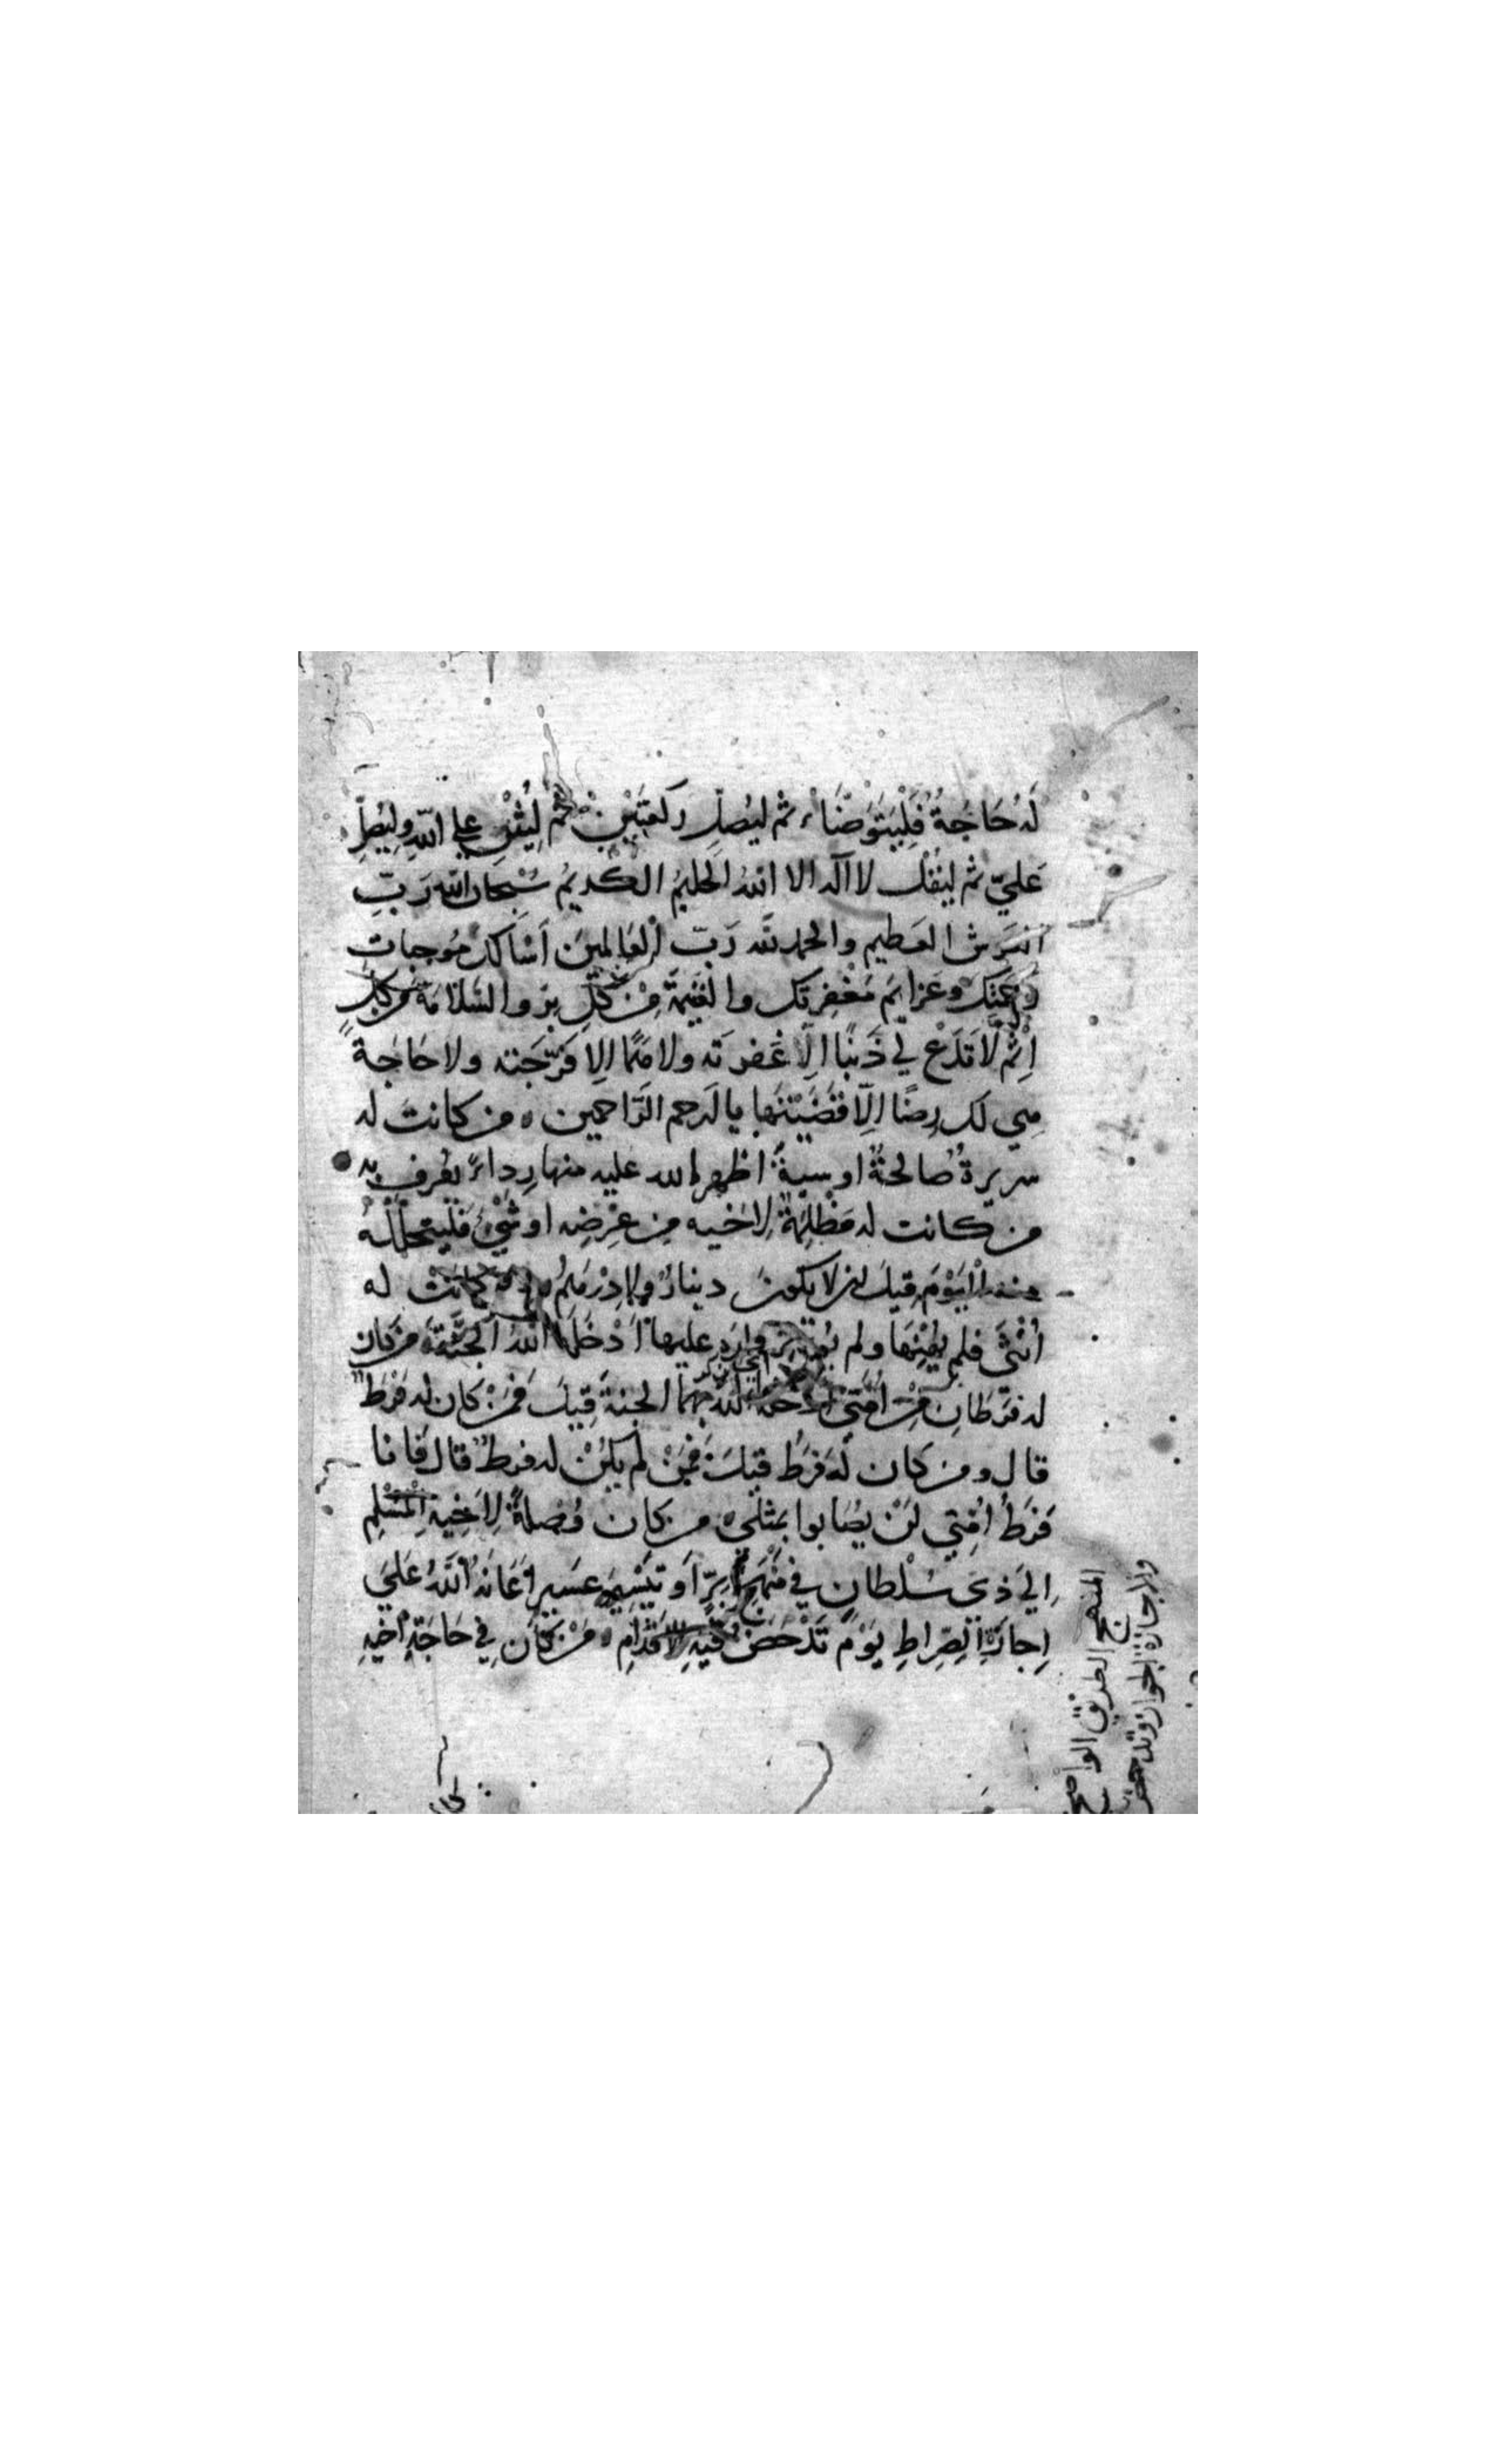 لَهُ حَاجَةٌ فَلْيَتَوَضَّاءْ ثم ليُصلِّ ركعَتَيْنِ ثُمَّ لِيُثْنِ علي اللّهِ وليُصلِّ
عَليّ ثم ليَقُلْ لا اله الا اللهُ الحليمُ الكريمُ سُبْحَان الله رَبِّ
العَرشِ العَظيم والحمد لله رَبّ الْعَالمينَ اَسْالك مُوجبات
رحْمَتِكَ وعَزايمَ مَغْفِرتك والغَنيمَةَ مِنْ كُلّ بِرٍّ والسَّلامَةَ مِن كُلّ
اِثْمٍ لَا تَدَعْ لِي ذَنبًا اِلّا غَفرتَه ولا هَمًّا اِلا فَرَّجَته ولا حَاجةً
هِي لك رِضًا اِلّا قَضَيْتَهَا يا ارحم الرَّاحمين ه من كانت له
سريرةٌ صالحةٌ او سيةٌ اظهر الله عليه منها رِداءً يُعْرف به
من كانت له مَظْلِمَةٌ لِاخيه مِن عِرْضِه او شَيْءٍ فليتحلَّلْهُ
منه الْيَوْمَ قبل ان لا يكونَ دينارٌ ولا دِرْهَمٌ ه من كانَتْ له
اُنْثَى فلم يُهِنْهَا ولم يُؤثِرْ ولده عليها اَدْخَلَهُ اللهُ الجَنَّةَ من كان
له فَرَطانِ مِنْ اُمّتي اَدْخله الله بهما الجنةَ قِيلَ فَمَنْ كان له فَرَطٌ
قال ومن كان له فَرَطٌ قيل فَمَنْ لم يكُنْ له فرطٌ قال فانا
فَرَطُ اُمَّتِي لَنْ يُصَابوا بمثلي ه من كان وُصلةً لِاَخِيهِ الْمُسْلِمِ
اِلَى ذي سُلْطانٍ في مَنْهَجِ بِرٍّ اَو تَيْسِيرِ عَسيرٍ اَعَانَهُ اللَّهُ عَلَى
اِجازَةِ الصِّراطِ يَوْمَ تَدْحَضُ فيهِ الْاَقْدَامِ ه مَنْ كَانَ فِي حَاجَةِ اَخِيهِ
المنهج الطريق الواضح
والاجازة الجواز وتدحض